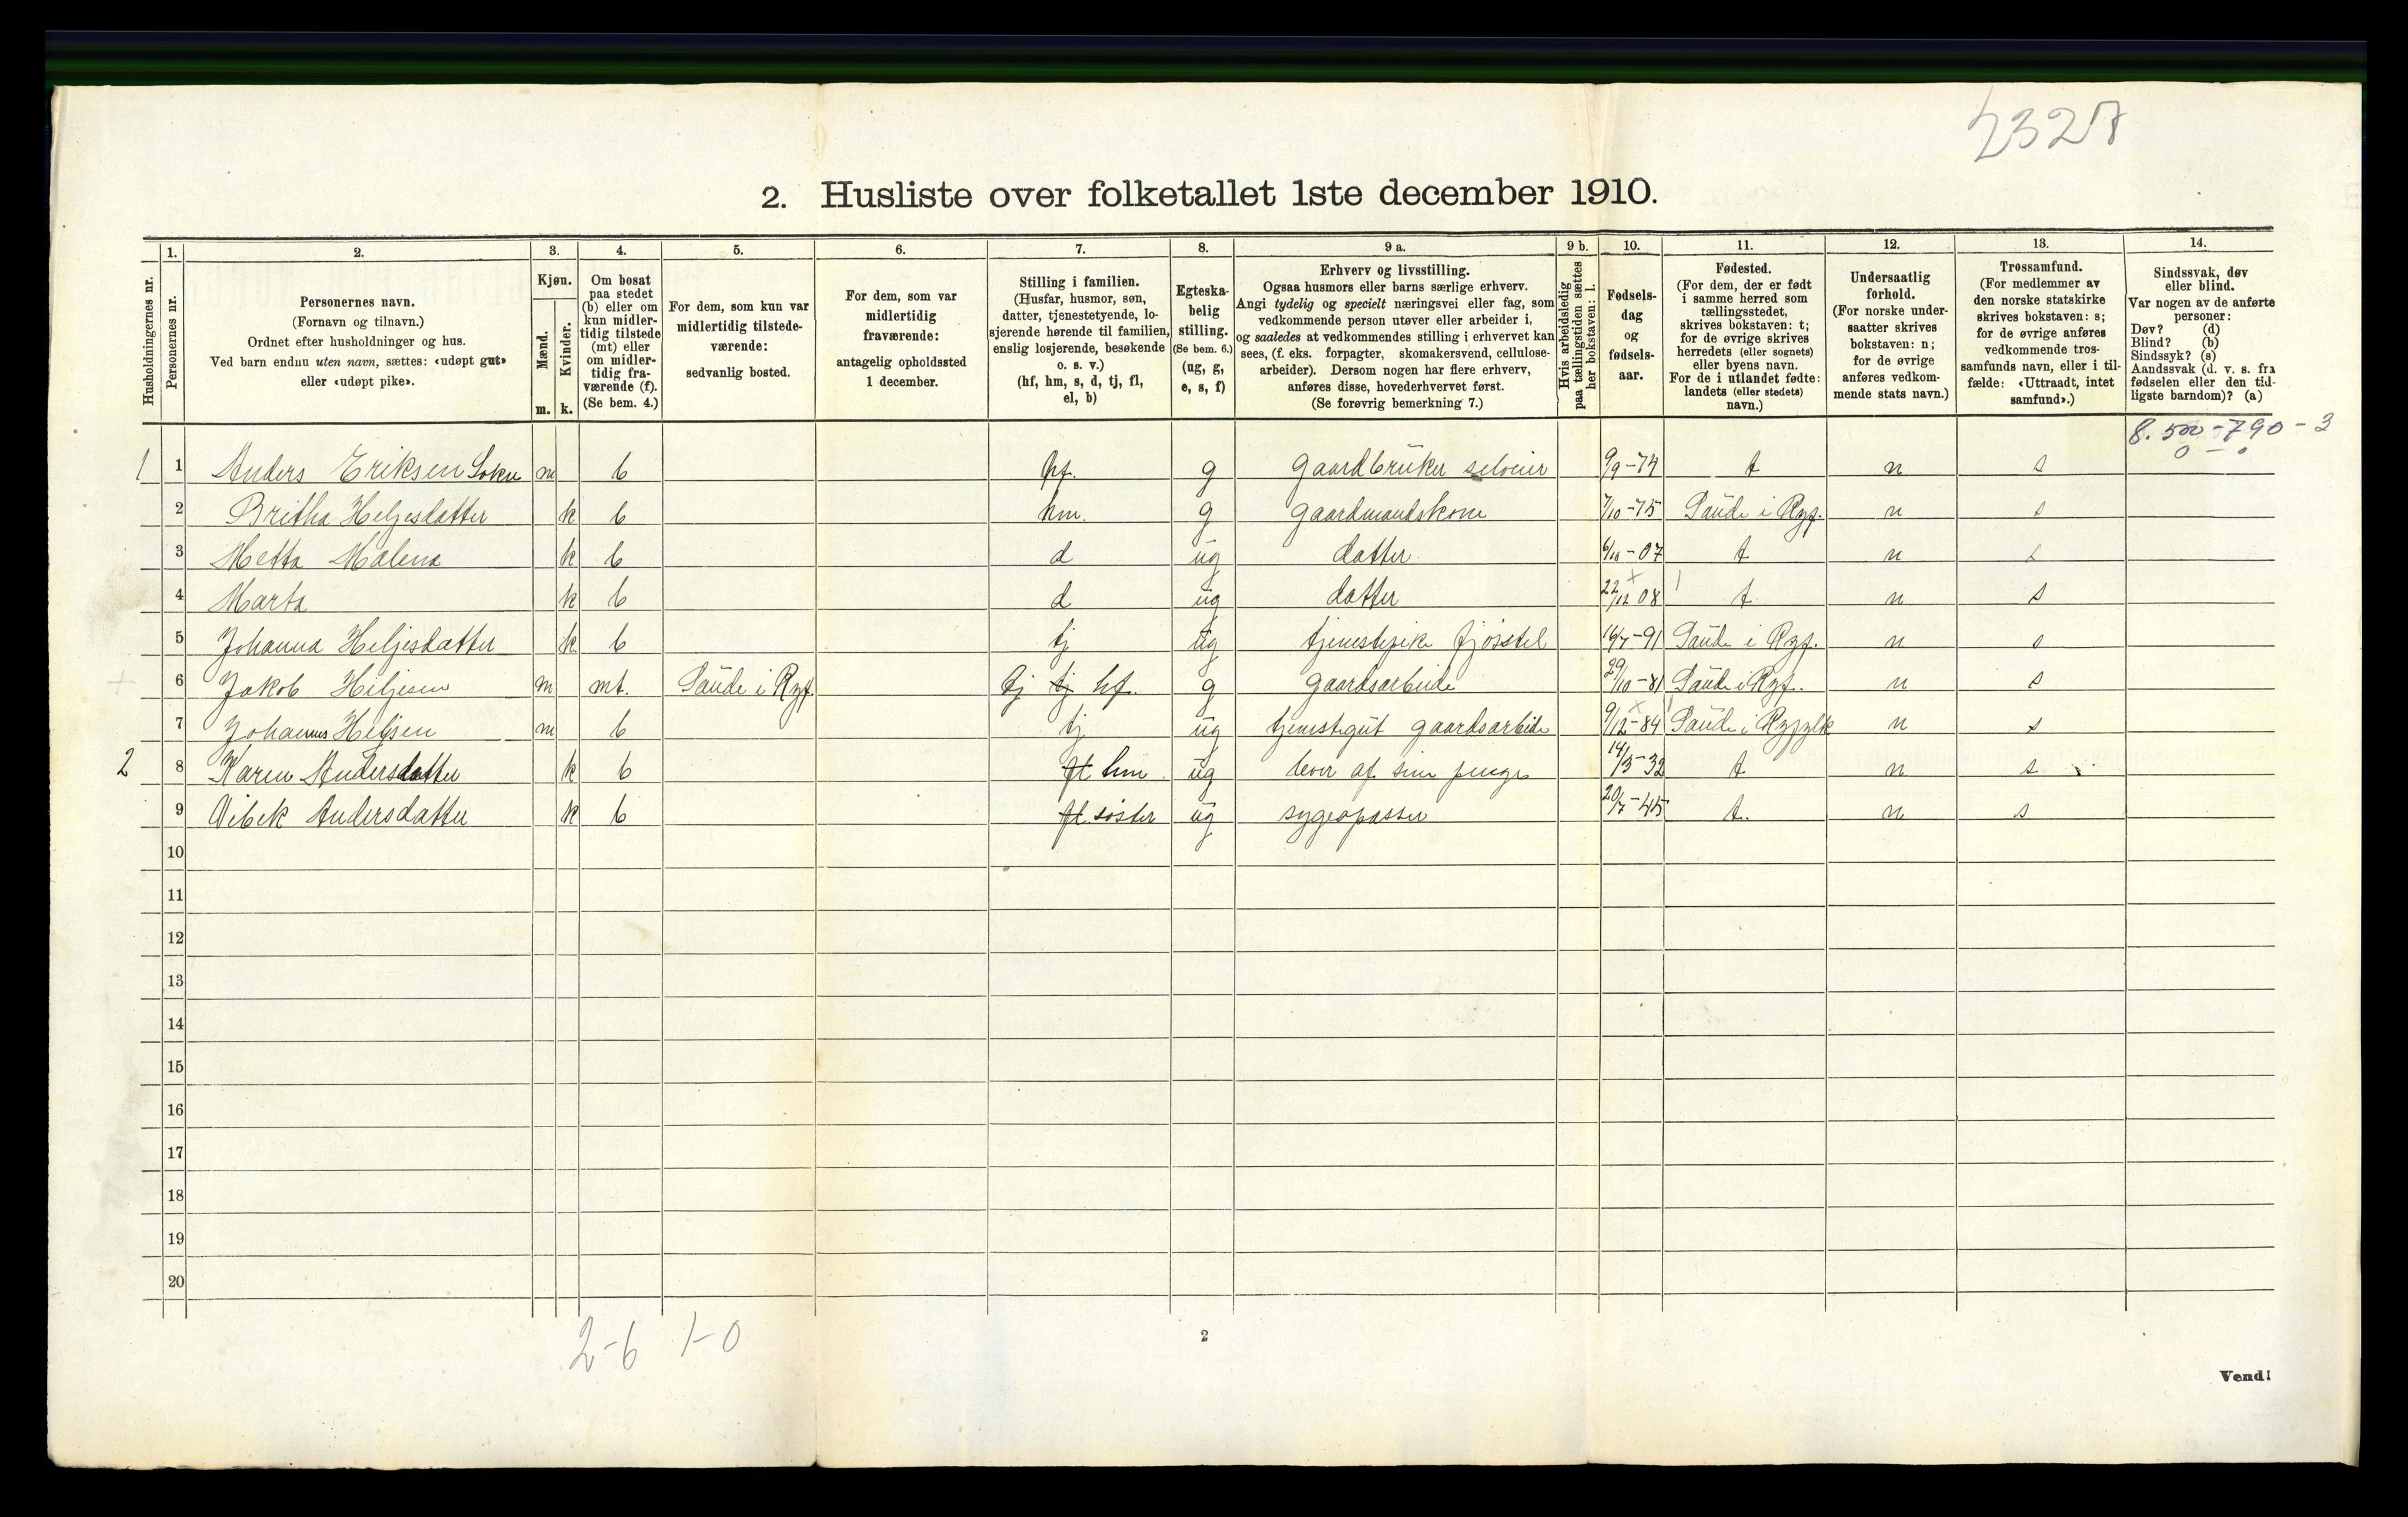 2327
2. Husliste over folketallet 1ste december 1910.
Husholdningernes nr.
1. Personernes nr.
2. Personernes navn. (Fornavn og tilnavn.) Ordnet efter husholdninger og hus. Ved barn endnu uten navn, sættes: «udøpt gut» eller «udøpt pike».
3. Kjøn. Mænd. m. Kvinder. k.
4. Om bosat paa stedet (b) eller om kun midlertidig tilstede (mt) eller om midlertidig fraværende (f). (Se bem. 4.)
5. For dem, som kun var midlertidig tilstedeværende: sedvanlig bosted.
6. For dem, som var midlertidig fraværende: antagelig opholdssted 1 december.
7. Stilling i familien. (Husfar, husmor, søn, datter, tjenestetyende, losjerende hørende til familien, enslig losjerende, besøkende o. s. v.) (hf, hm, s, d, tj, fl, el, b)
8. Egteskabelig stilling. (Se bem. 6.) (ug, g, e, s, f)
9 a. Erhverv og livsstilling. Ogsaa husmors eller barns særlige erhverv. Angi tydelig og specielt næringsvei eller fag, som vedkommende person utøver eller arbeider i, og saaledes at vedkommendes stilling i erhvervet kan sees, (f. eks. forpagter, skomakersvend, cellulosearbeider). Dersom nogen har flere erhverv, anføres disse, hovederhvervet først. (Se forøvrig bemerkning 7.)
9 b. Hvis arbeidsledig paa tællingstiden sættes her bokstaven: l.
10. Fødselsdag og fødselsaar.
11. Fødested. (For dem, der er født i samme herred som tællingsstedet, skrives bokstaven: t; for de øvrige skrives herredets (eller sognets) eller byens navn. For de i utlandet fødte: landets (eller stedets) navn.)
12. Undersaatlig forhold. (For norske undersaatter skrives bokstaven: n; for de øvrige anføres vedkommende stats navn.)
13. Trossamfund. (For medlemmer av den norske statskirke skrives bokstaven: s; for de øvrige anføres vedkommende trossamfunds navn, eller i tilfælde: «Uttraadt, intet samfund».)
14. Sindssvak, døv eller blind. Var nogen av de anførte personer: Døv? (d) Blind? (b) Sindssyk? (s) Aandssvak (d. v. s. fra fødselen eller den tidligste barndom)? (a)
8.500-790-3
0 - 0
1 1 Anders Eriksen m b hf. g gaardbruker selveier 9/9-74 t n s
2 Britha Heljesdatter k b hm. g gaardmandskone 7/10-75 Saude i Ryf. n s
3 Metta Malena k b d ug datter 6/10-07 t n s
4 Marta k b d ug datter 22/12 08 t n s
5 Johanna Heljesdatter k b tj ug tjenestepike fjøsstel 16/7-91 Saude i Ryf. n s
6 Jakob Heljesen m mt. Saude i Ryf. tj tj hf. g gaardsarbeide 29/10-81 Saude i Ryf. n s
7 Johannes Heljsen m b tj ug tjenestegut gaardsarbeide 9/12-84 Saude i Ryfylk n s
2 8 Karen Andersdatter k b fl hm ug lever af sine penge 14/3-32 t n s
9 Vibek Andersdatter k b fl søster ug sygepasser 20/7-45 t. n s
10
11
12
13
14
15
16
17
18
19
20
2-6 1-0
2
Vend!